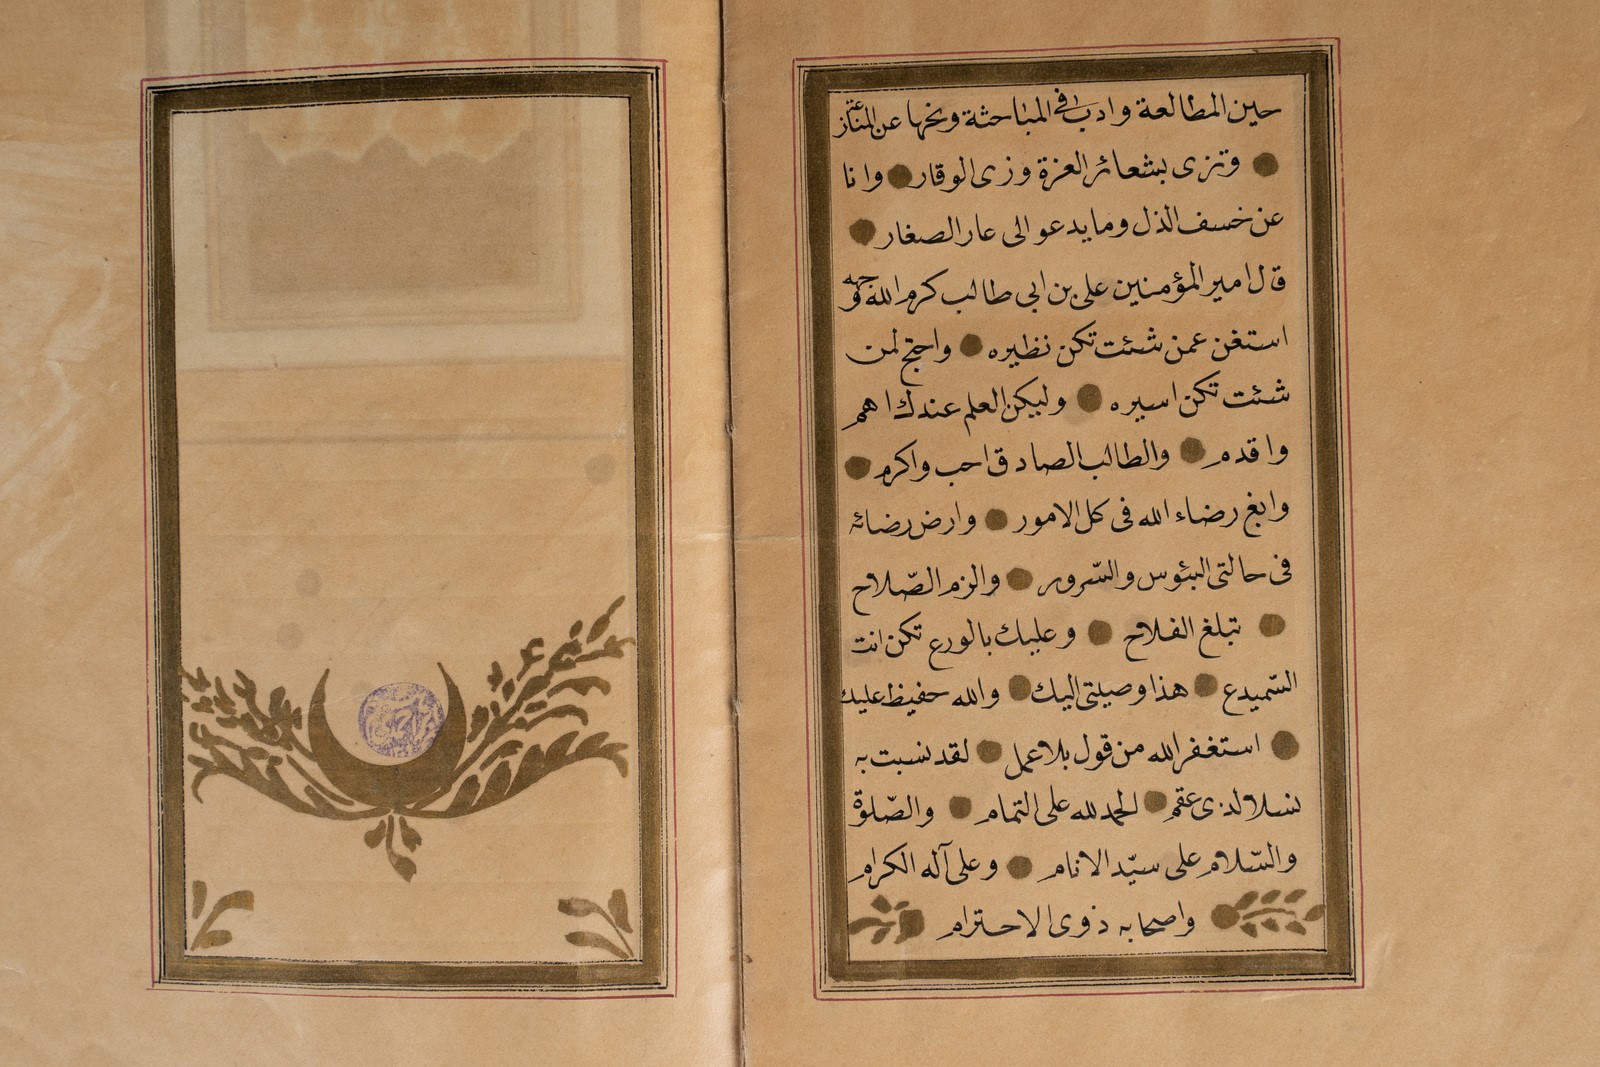 حين المطالعة وادب في المباحثة ونحها عن المنازعة
وتزى بشعائر العزة وزى الوقار وانا
عن خسف الذل وما يدعو الى عار الصغار
قال امير المؤمنين على بن ابى طالب كرم الله وجهه
استغن عمن شئت تكن نظيره واحتج لمن
شئت تكن اسيره وليكن العلم عندك اهم
واقدم والطالب الصادق احب واكرم
وابغ رضاء الله فى كل الامور وارض رضائه
فى حالتى البئوس والسّرور والزم الصّلاح
تبلغ الفلاح وعليك بالورع تكن انت
السّميدع هذا وصيتى اليك والله حفيظ عليك
استغفر الله من قول بلا عمل لقد نسبت به
نسلا لذى عقم الحمد لله على التمام والصّلوة
والسّلام على سيّد الانام وعلى آله الكرام
واصحابه ذوى الاحترام